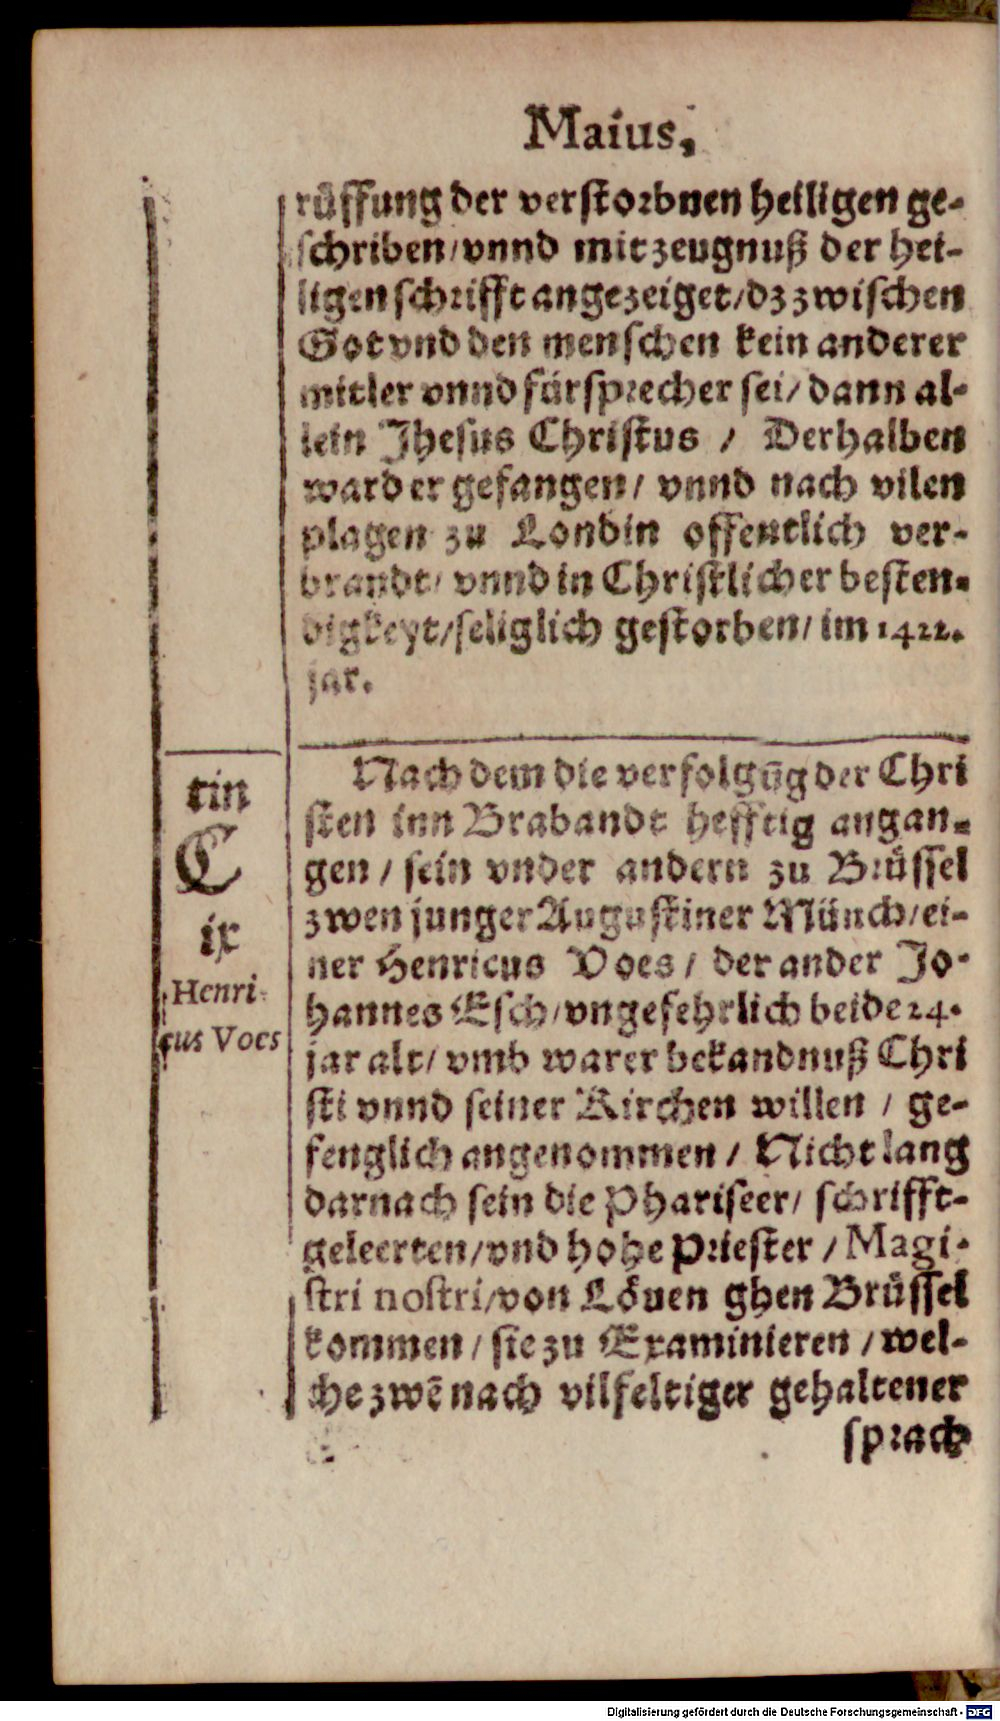 Maius,
rüffung der verstorbnen heiligen ge-
schriben/vnnd mit zeugnuß der hei-
ligen schrifft angezeiget/dz zwischen
Got vnd den menschen kein anderer
mitler vnnd fürsprecher sei/ dann al-
lein Jhesus Christus / Derhalben
ward er gefangen/ vnnd nach vilen
plagen zu Londin offentlich ver-
brandt/ vnnd in Christlicher besten-
digkeyt/seliglich gestorben/im 1422.
jar.
tin
C
ix
Henri-
cus Voes
Nach dem die verfolgũg der Chri
sten inn Brabandt hefftig angan-
gen / sein vnder andern zu Brüssel
zwen junger Augustiner Münch/ei-
ner Henricus Voes / der ander Jo-
hannes Esch/vngefehrlich beide 24.
jar alt/ vmb warer bekandnuß Chri
sti vnnd seiner Kirchen willen / ge-
fenglich angenommen / Nicht lang
darnach sein die Phariseer/ schrifft-
geleerten/vnd hohe Priester / Magi-
stri nostri/von Löuen ghen Brüssel
kommen / sie zu Examinieren / wel-
che zwẽ nach vilfeltiger gehaltener
sprach
Digitalisierung gefördert durch die Deutsche Forschungsgemeinschaft - DFG